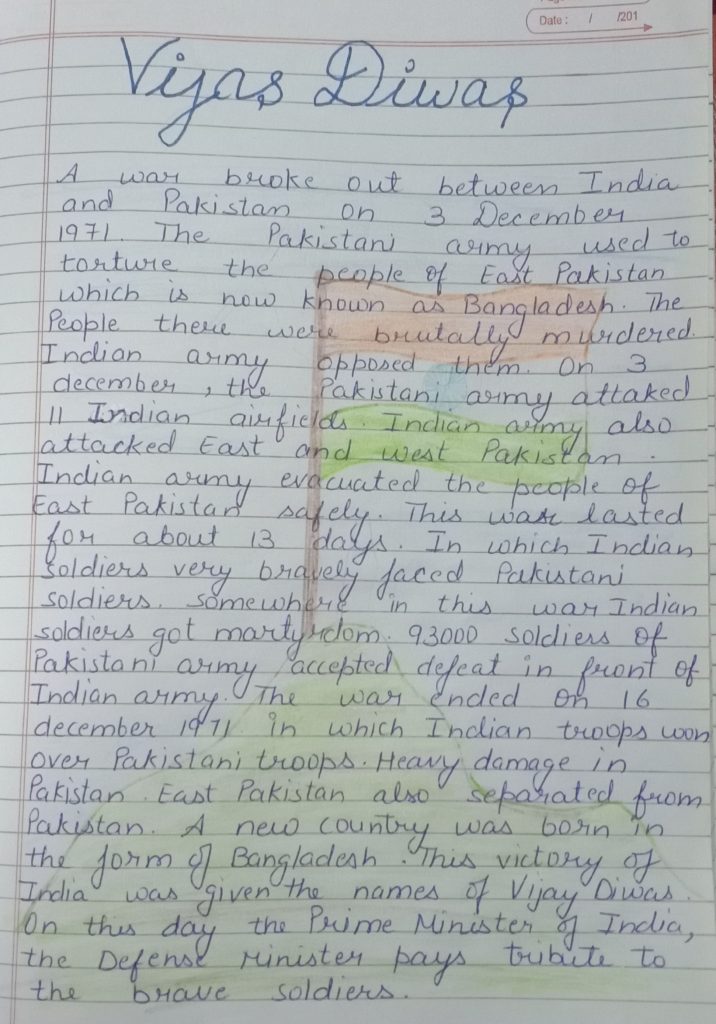 Date : / /201
Vijas Diwas
A war broke out between India
and Pakistan on 3 December
1971. The Pakistani army used to
torture the people of East Pakistan
which is now known as Bangladesh. The
People there were brutally murdered.
Indian army opposed them. On 3
december, the Pakistani army attaked
11 Indian airfields. Indian army also
attacked East and west Pakistan.
Indian army evacuated the people of
East Pakistan safely. This war lasted
for about 13 days. In which Indian
soldiers very bravely faced Pakistani
soldiers. Somewhere in this war Indian
soldiers got martyrdom. 93000 soldiers of
Pakistani army accepted defeat in front of
Indian army. The war ended on 16
december 1971 in which Indian troops won
over Pakistani troops. Heavy damage in
Pakistan. East Pakistan also separated from
Pakistan. A new country was born in
the form of Bangladesh. This victory of
India was given the names of Vijay Diwas.
On this day the Prime Minister of India,
the Defense Minister pays tribute to
the brave soldiers.